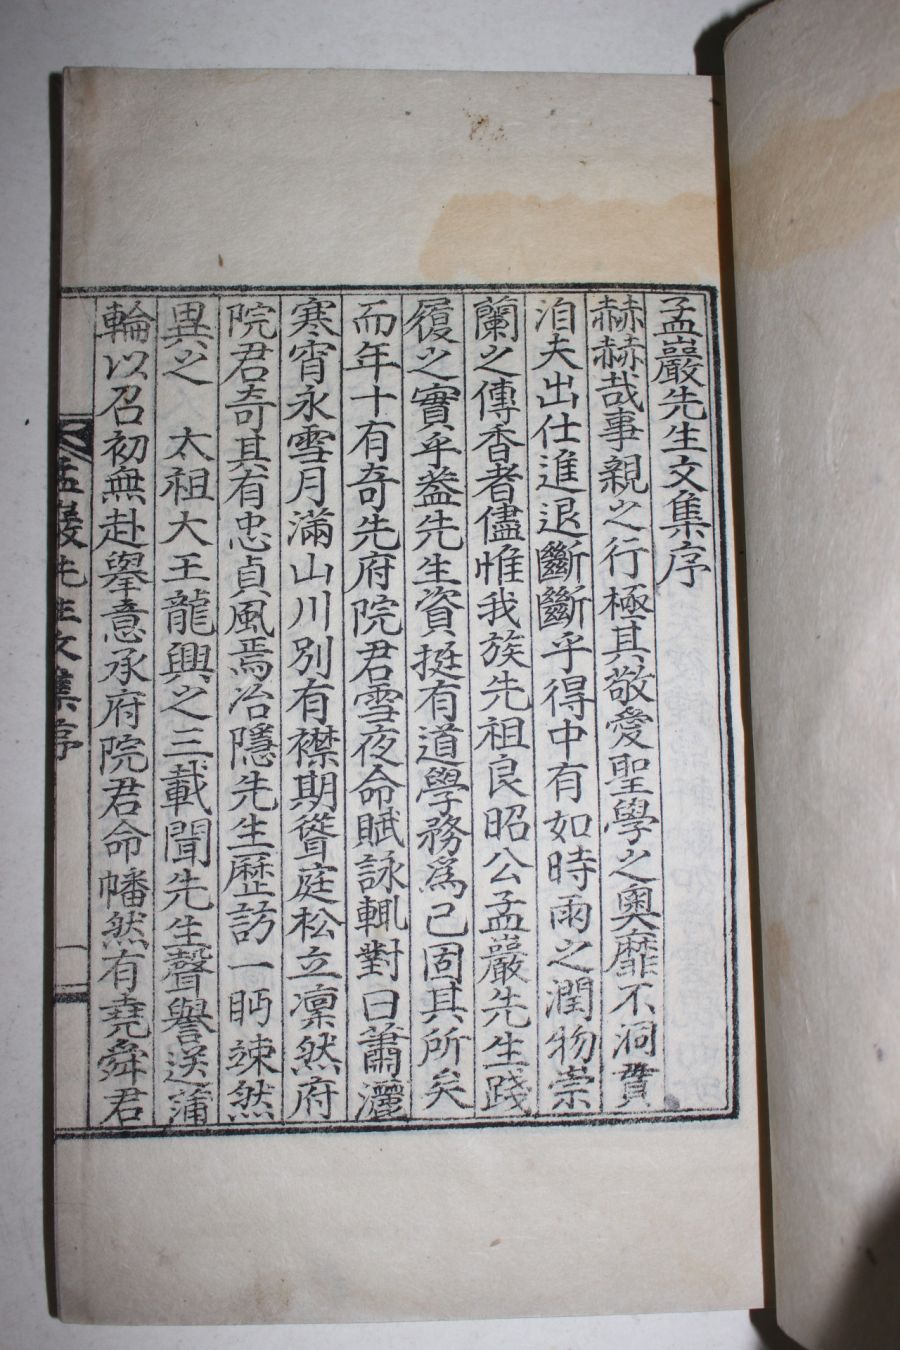 孟巖先生文集序
赫赫哉事親之行極其敬愛聖學之奧靡不洞貫
洎夫出仕進退斷斷乎得中有如時雨之潤物崇
蘭之傳香者儘惟我族先祖良昭公孟巖先生踐
履之實乎盖先生資挺有道學務爲己固其所矣
而年十有奇先府院君雪夜命賦詠輒對曰蕭灑
寒宵永雪月滿山川別有襟期聳庭松立凜然府
院君奇其有忠貞風焉冶隱先生歷訪一眄竦然
異之 太祖大王龍興之三載聞先生聲譽送蒲
輪以召初無赴擧意承府院君命幡然有堯舜君
孟巖先生文集序